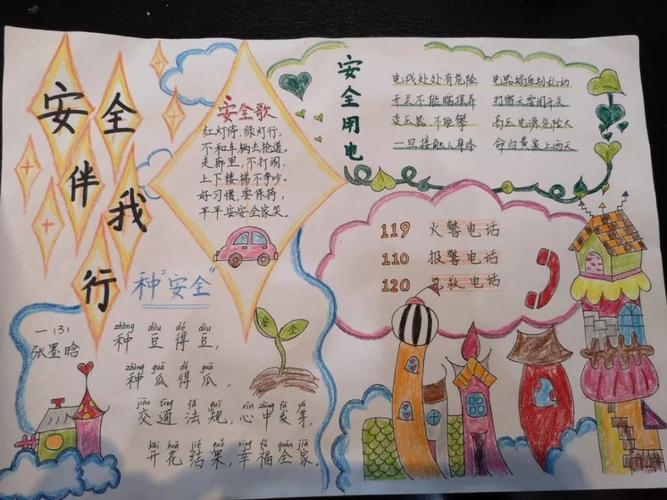 安全伴我行
安全歌
红灯停,绿灯行,
不和车辆去抢道。
走廊里,不打闹,
上下楼梯不争吵。
好习惯,要保持,
平平安安全家笑。
安全用电
电线处处有危险 电器插座别乱动
开关不能瞎摸弄 打雷天要闭开关
变压器不能攀 高压电源危险大
一旦接触人身体 命归黄泉上西天
119 火警电话
110 报警电话
120 急救电话
种“安全”
一(3)
张墨晗
zhòng dòu dé dòu
种豆得豆,
zhòng guā dé guā
种瓜得瓜,
jiāo tōng fǎ guī xīn zhōng fā yá
交通法规,心中发芽,
kāi huā jiē guǒ xìng fú quán jiā
开花结果,幸福全家。